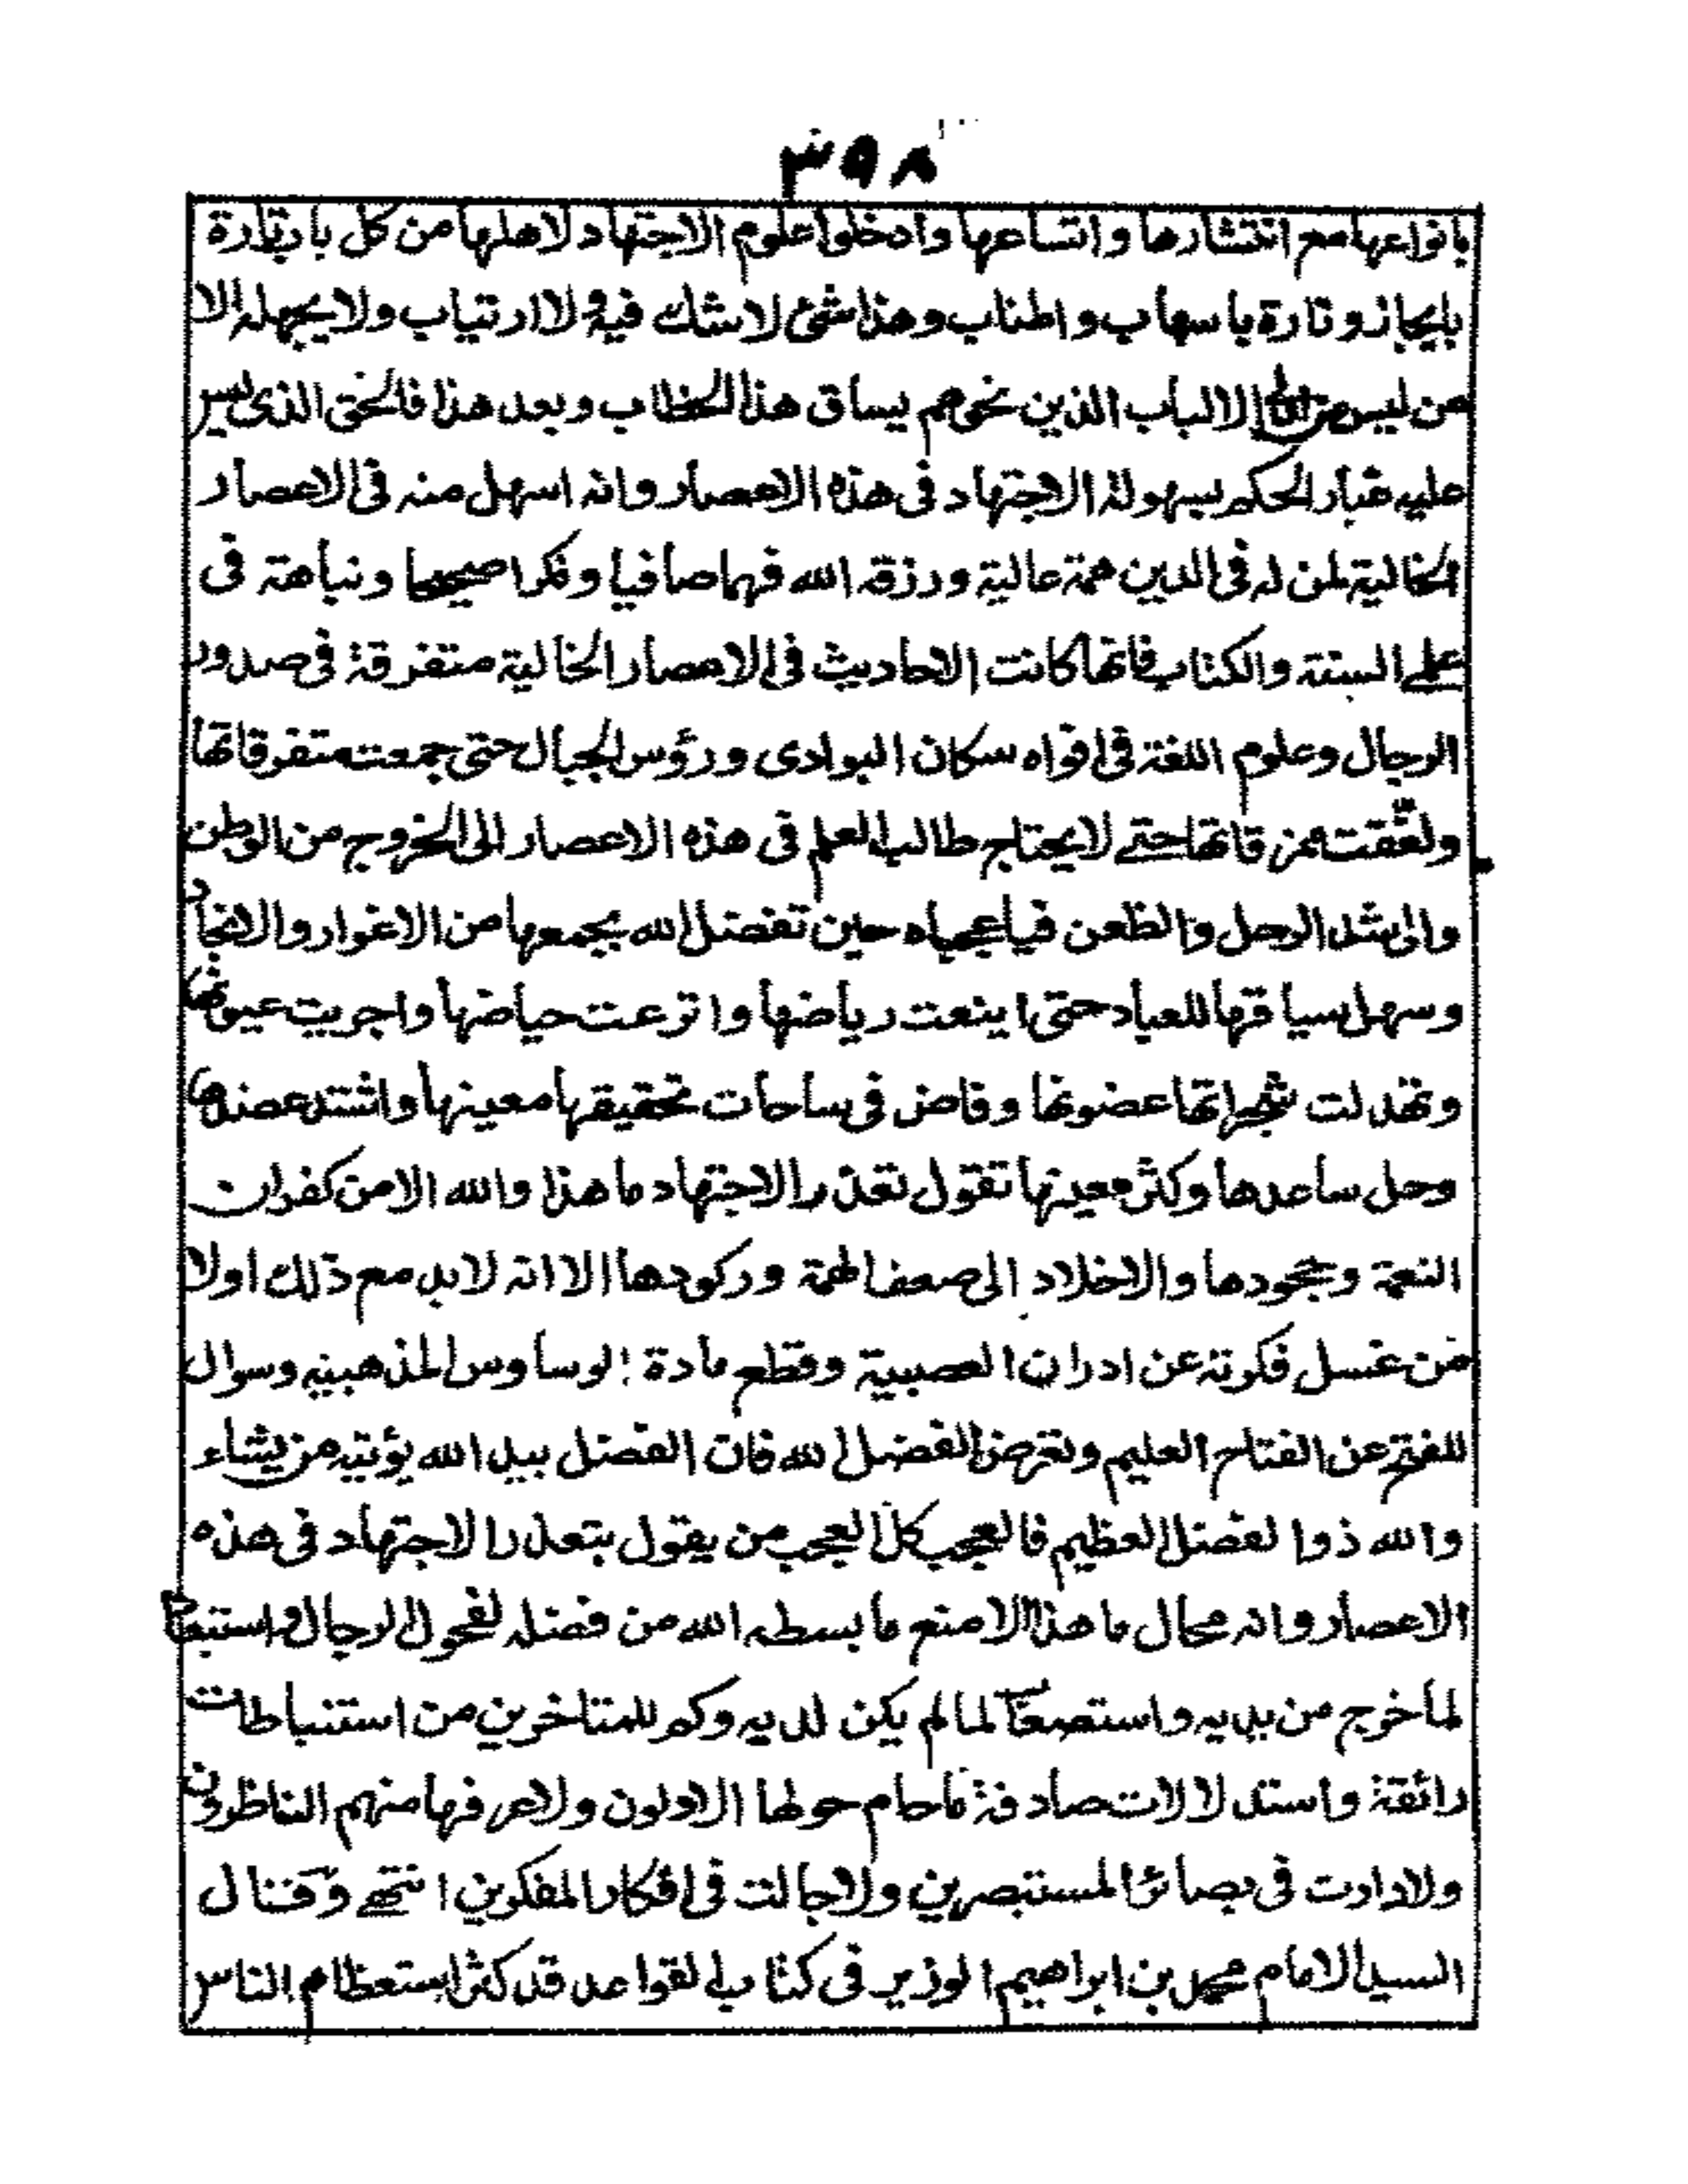 ٣٩٨
بانواعها مع انتشارها واتساعها وادخلوا علوم الاجتهاد لاهلها من كل باب تارة
بايجاز وتارة باسهاب واطناب وهذا شئ لا شك فيه ولا ارتياب ولا يجهله الا
من ليس من الالباب الذين نحوهم يساق هذا الخطاب وبعد هذا فالحق الذى ليس
عليه غبار الحكم بسهولة الاجتهاد فى هذه الاعصار وانه اسهل منه فى الاعصار
الخالية لمن له فى الدين همة عالية ورزقه الله فهما صافيا وفكرا صحيحا ونباهة فى
علمى السنة والكتاب فانها كانت الاحاديث فى الاعصار الخالية متفرقة فى صدور
الرجال وعلوم اللغة فى افواه سكان البوادى ورؤس الجبال حتى جمعت متفرقاتها
ولفقت ممزقاتها حتى لا يحتاج طالب العلم فى هذه الاعصار الى الخروج من الوطن
والى شد الرحل والظعن فيا عجباه حين تفضل الله بجمعها من الاغوار والانجاد
وسهل سياقها للعباد حتى اينعت رياضها واترعت حياضها واجريت عيونها
وتهدلت بثمراتها غضونها وفاض فى ساحات تحقيقها معينها واشتد عضدها
وحل ساعدها وكثر معينها تقول تعذر الاجتهاد ما هذا والله الا من كفران
النعمة وجحودها والاخلاد الى ضعف الهمة وركودها الا انه لا بد مع ذلك اولا
من غسل فكرته عن ادران العصبية وقطع مادة الوساوس المذهبية وسوال
للفتح عن الفتاح العليم وتعرض لفضل الله فان الفضل بيد الله يؤتيه من يشاء
والله ذو الفضل العظيم فالعجب كل العجب من يقول بتعذر الاجتهاد فى هذه
الاعصار وانه محال ما هذا الا منع ما بسطه الله من فضله لفحول الرجال واستبعاد
لما خرج من يديه واستصعاب لما لم يكن لديه وكم للمتاخرين من استنباطات
رائقة واستدلالات صادقة ما حام حولها الاولون ولا عرفها منهم الناظرون
ولا دارت فى بصائر المستبصرين ولا جالت فى افكار المفكرين انتهى وقال
السيد الامام محمد بن ابراهيم الوزير فى كتاب القواعد قد كثر استعظام الناس